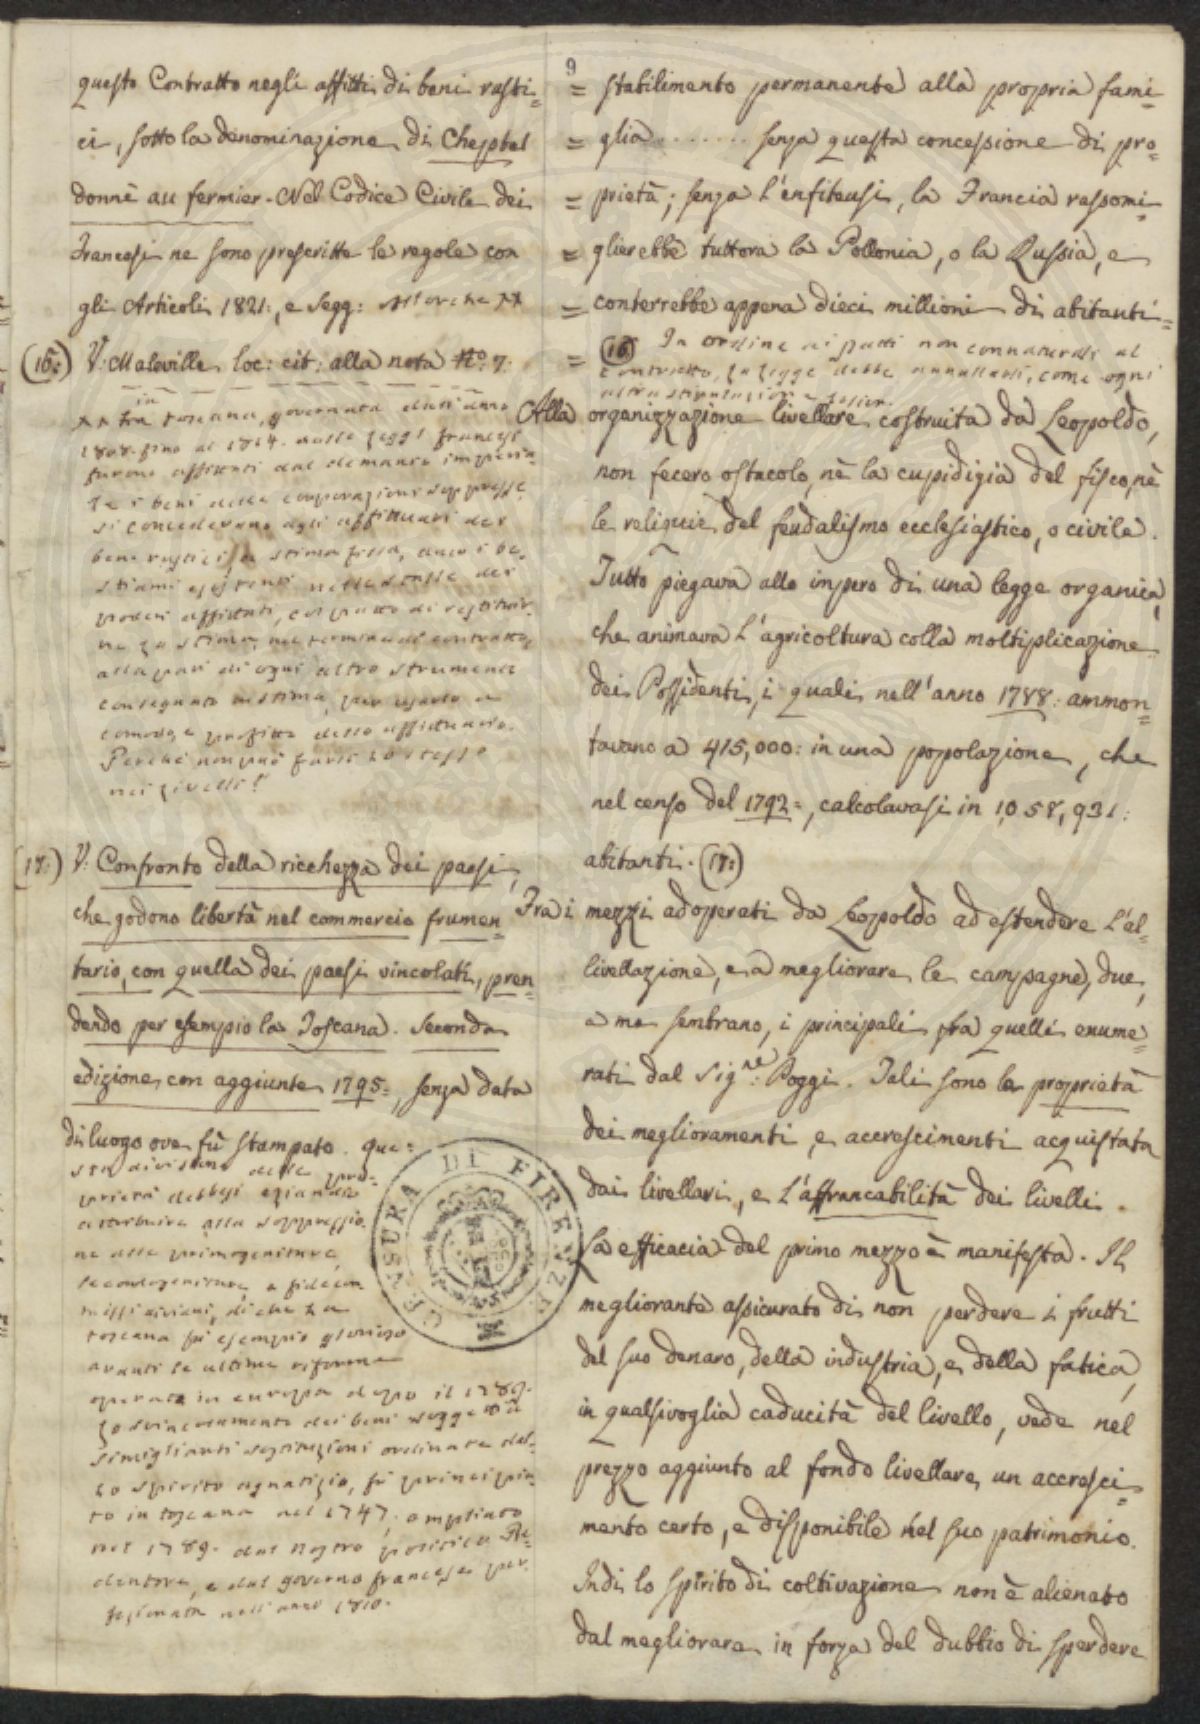 9
questo Contratto negli affitti di beni rusti=
ci, sotto la denominazione di Cheptel
donné au fermier. Nel Codice Civile dei
Francesi ne sono prescritte le regole con
gli Articoli 1821:, e segg:
(16:) V: Maleville loc: cit: alla nota N.o 7.
in Toscana, governata dall'anno
1808. fino al 1814. dalle leggi francesi
furono affittati dal demanio imperia=
le i beni delle corporazioni soppresse
si concedevano agli affittuari dei
beni rustici, a stima fissa, anco i be=
stiami esistenti nelle stalle dei
poderi affittati, col patto di restituir=
ne la stima, nel termine del contratto,
alla pari di ogni altro strumento
consegnato a stima, per usarlo a
comodo, e profitto dello affittuario.
Perchè non può farsi lo stesso
nei livelli?
(17:) V: Confronto della ricchezza dei paesi,
che godono libertà nel commercio frumen=
tario, con quella dei paesi vincolati, pren=
dendo per esempio la Toscana. Seconda
edizione con aggiunte 1795:, senza data
di luogo ove fù stampato. Que=
sta divisione delle pro=
prietà debbesi eziandio
attribuire alla soppressio
ne delle primogeniture
secondogeniture, e fidecom
missi dividui, di che la
Toscana fù esempio glorioso
avanti le ultime riforme
operate in Europa dopo il 1789.
Lo svincolamento dei beni soggetti a
simiglianti sostituzioni ordinate dal=
lo spirito agnatizio, fù principia=
to in Toscana nel 1747, ampliato
nel 1789. dal nostro politico Re=
dentore, e dal governo francese per
fezionata nell'anno 1810.
= stabilimento permanente alla propria fami=
= glia ........ senza questa concessione di pro=
= prietà; senza l'enfiteusi, la Francia rassomi=
= glierebbe tuttora la Pollonia, o la Russia, e
= conterrebbe appena dieci millioni di abitanti=
= (16) In ordine ai patti non connaturali al
contratto, la legge debbe annullarli, come ogni
altra stipulazione
Alla organizzazione livellare costruita da Leopoldo,
non fecero ostacolo, nè la cupidigia del fisco, nè
le reliquie del feudalismo ecclesiastico, o civile.
Tutto piegava allo impero di una legge organica,
che animava l'agricoltura colla moltiplicazione
dei Possidenti, i quali nell'anno 1788: ammon=
tavano a 415,000: in una popolazione, che
nel censo del 1792=, calcolavasi in 1,058,931:
abitanti. (17:)
Fra i mezzi adoperati da Leopoldo ad estendere l'al=
livellazione, e a megliorare le campagne, due,
a me sembrano, i principali fra quelli enume=
rati dal Sig.re: Poggi. Tali sono la proprietà
dei meglioramenti, e accrescimenti acquistata
dai livellari, e l'affrancabilità dei livelli.
La efficacia del primo mezzo è manifesta. Il
megliorante assicurato di non perdere i frutti
del suo denaro, della industria, e della fatica,
in qualsivoglia caducità del livello, vede nel
prezzo aggiunto al fondo livellare, un accresci=
mento certo, e disponibile nel suo patrimonio.
Indi lo spirito di coltivazione non è alienato
dal megliorare in forza del dubbio di sperdere
CENSURA DI FIRENZE